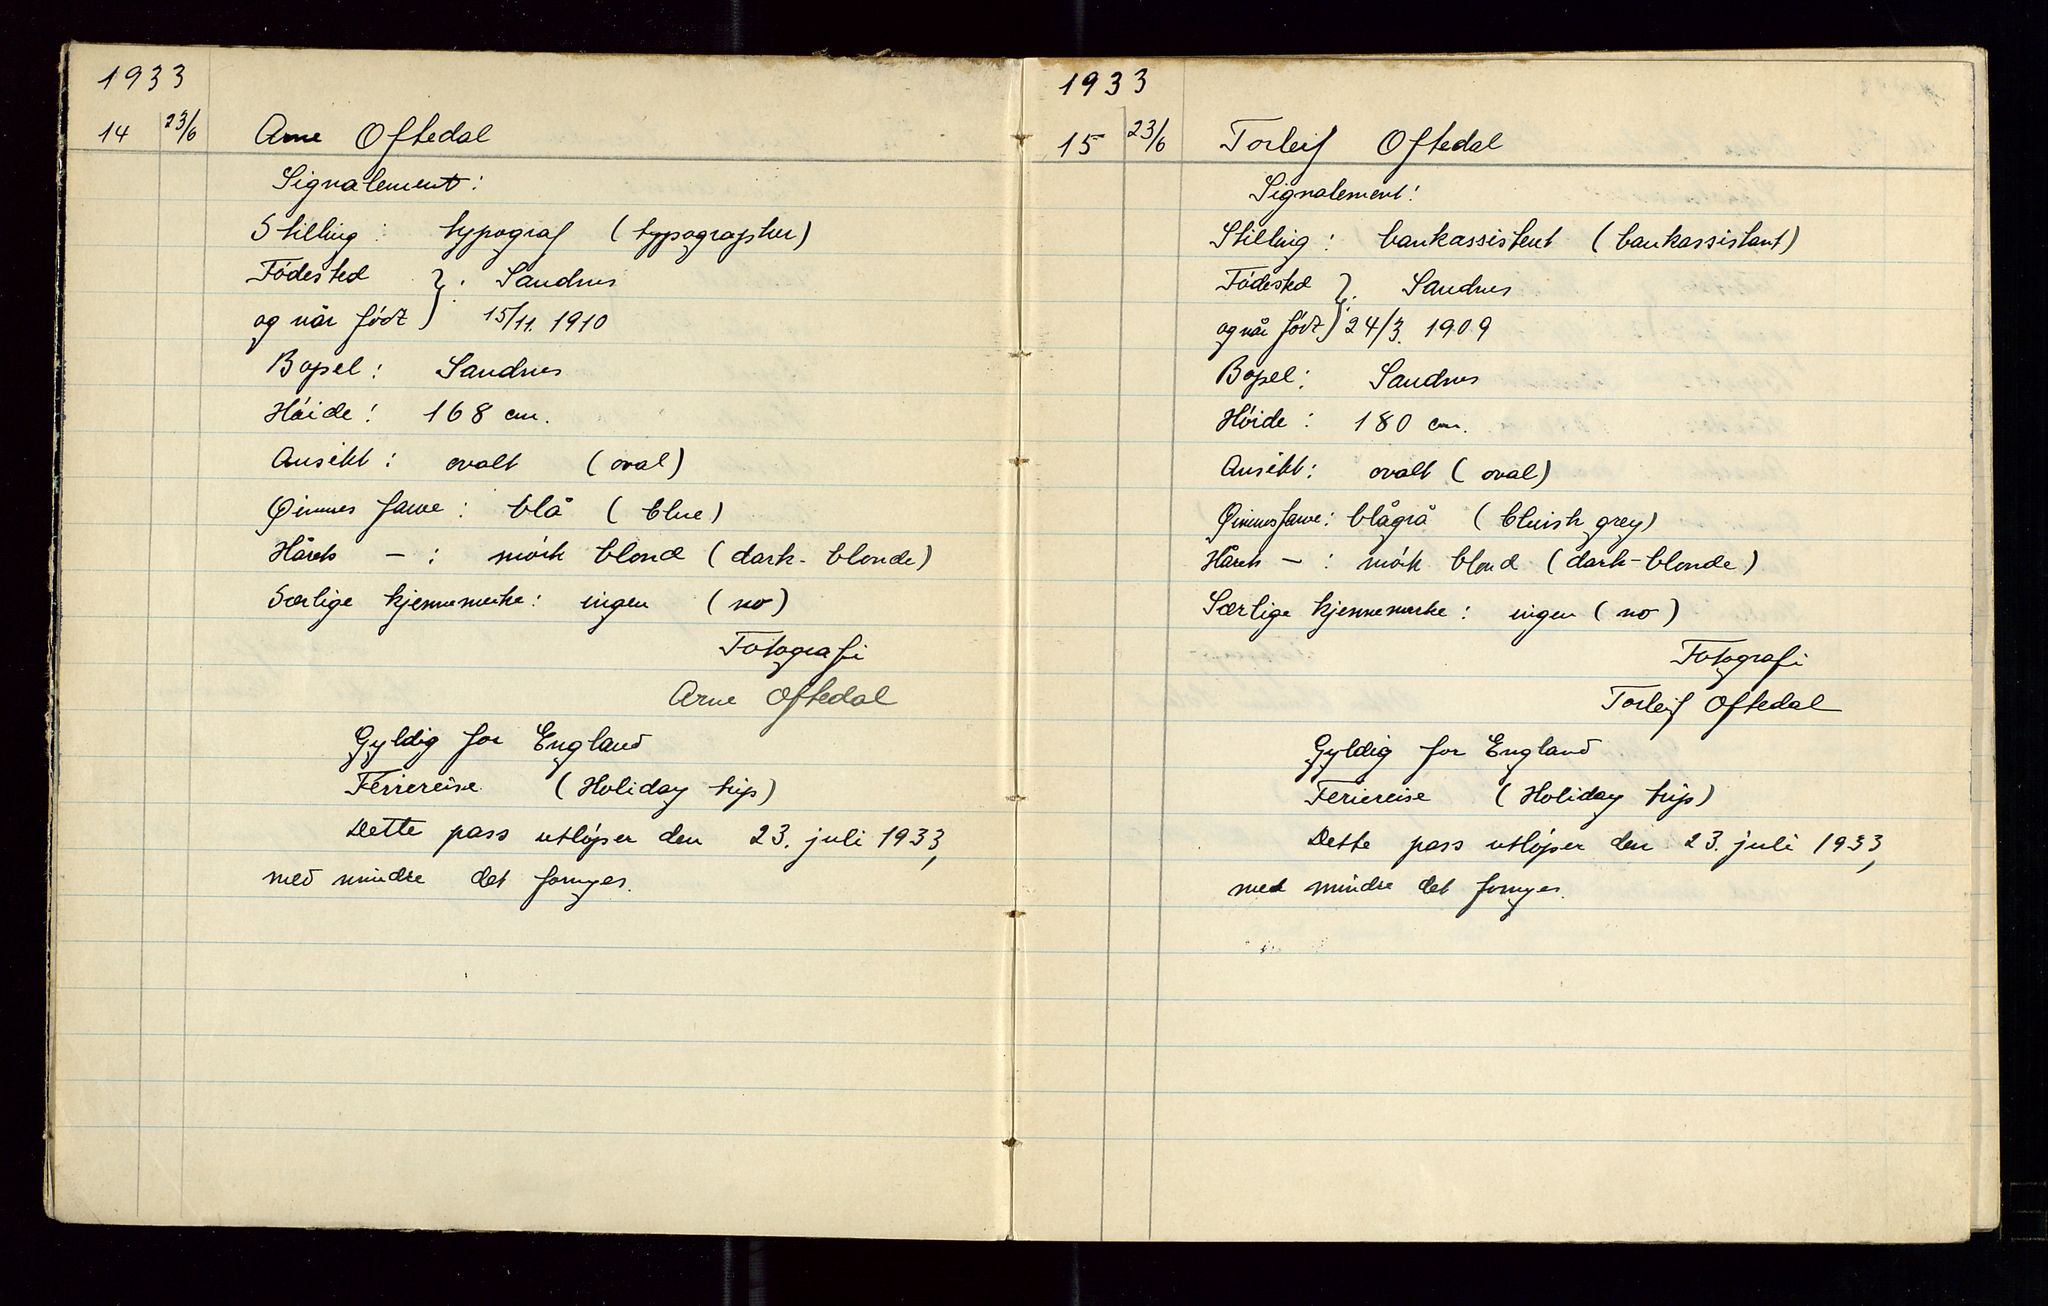 1933
14 23/6 Arne Oftedal
Signalement:
Stilling: typograf (typographer)
Födested } : Sandnes
og når födt } 15/11. 1910
Bopel: Sandnes
Höide: 168 cm.
Ansikt: ovalt (oval)
Øinnes farve: blå (blue)
Hårets — : mörk blond (dark-blonde)
Særlige kjennemerke: ingen (no)
Fotografi
Arne Oftedal
Gyldig for England
Feriereise (Holiday trip)
Dette pass utlöper den 23. juli 1933,
med mindre det fornyes.
1933
15 23/6 Torleif Oftedal
Signalement:
Stilling: bankassistent (bankassistant)
Födested } : Sandnes
og når födt } 24/3. 1909
Bopel: Sandnes
Höide: 180 cm.
Ansikt: ovalt (oval)
Øinnes farve: blågrå (bluish grey)
Hårets — : mörk blond (dark-blonde)
Særlige kjennemerke: ingen (no)
Fotografi
Torleif Oftedal
Gyldig for England
Feriereise (Holiday trip)
Dette pass utlöper den 23. juli 1933,
med mindre det fornyes.